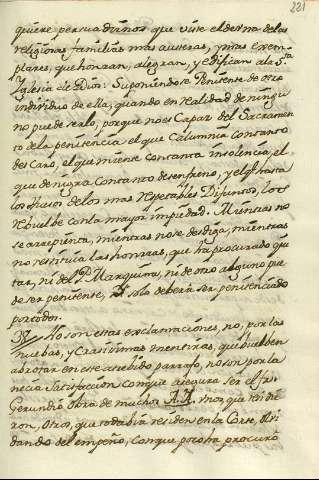 221
quiere, persuadirnos que viste el der ma de las
religiosas familias mas austeras, y mas exem-
plares, que honran, alegran, y edifican a la Sta
Yglesia de Dios: Suponiendose Penitente de otro
individuo de ella, quando en realidad de ningu
no puede serlo, porque no es Capaz del Sacramen
to de la penitencia el que Calumnia con tanto
descaro, el que miente con tanta insolencia, el
que denigra con tanto desenfreno, y el qe hasta
los huesos de los mas respetables Difuntos, los
rebuelbe con la mayor impiedad. Mientras no
se arrepienta, mientras no se desdiga, mientras
no restituia las honrras, que ha procurado qui
tar, ni del Pe Marquina, ni de otro alguno pue
de ser penitente, solo deberá ser penitenciado
por todos.
38 No son estas exclamaciones, no, por las
nuebas, y Crasisimas mentiras, que buelben
a brotar en este atrebido parrafo, no son por la
necia Satisfaccion con que asegura ser el fr.
Gerundio Obra de muchos A.A. unos, que
ron, Otros, que todabia residen en la Corte, Olvi
dando del empeño, con que poco ha procuró